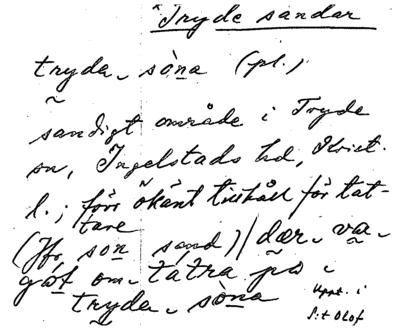 Tryde sandar
tryda- sòna (pl.)
sandigt område i Tryde
sn, Ingelstads hd, Krist.
l.; förr ökänt tillhåll för tat-
tare
(Jfr son sand) | dær- va-
gåt om- tatra på i
tryda- sòna
Uppt. i
S:t Olof